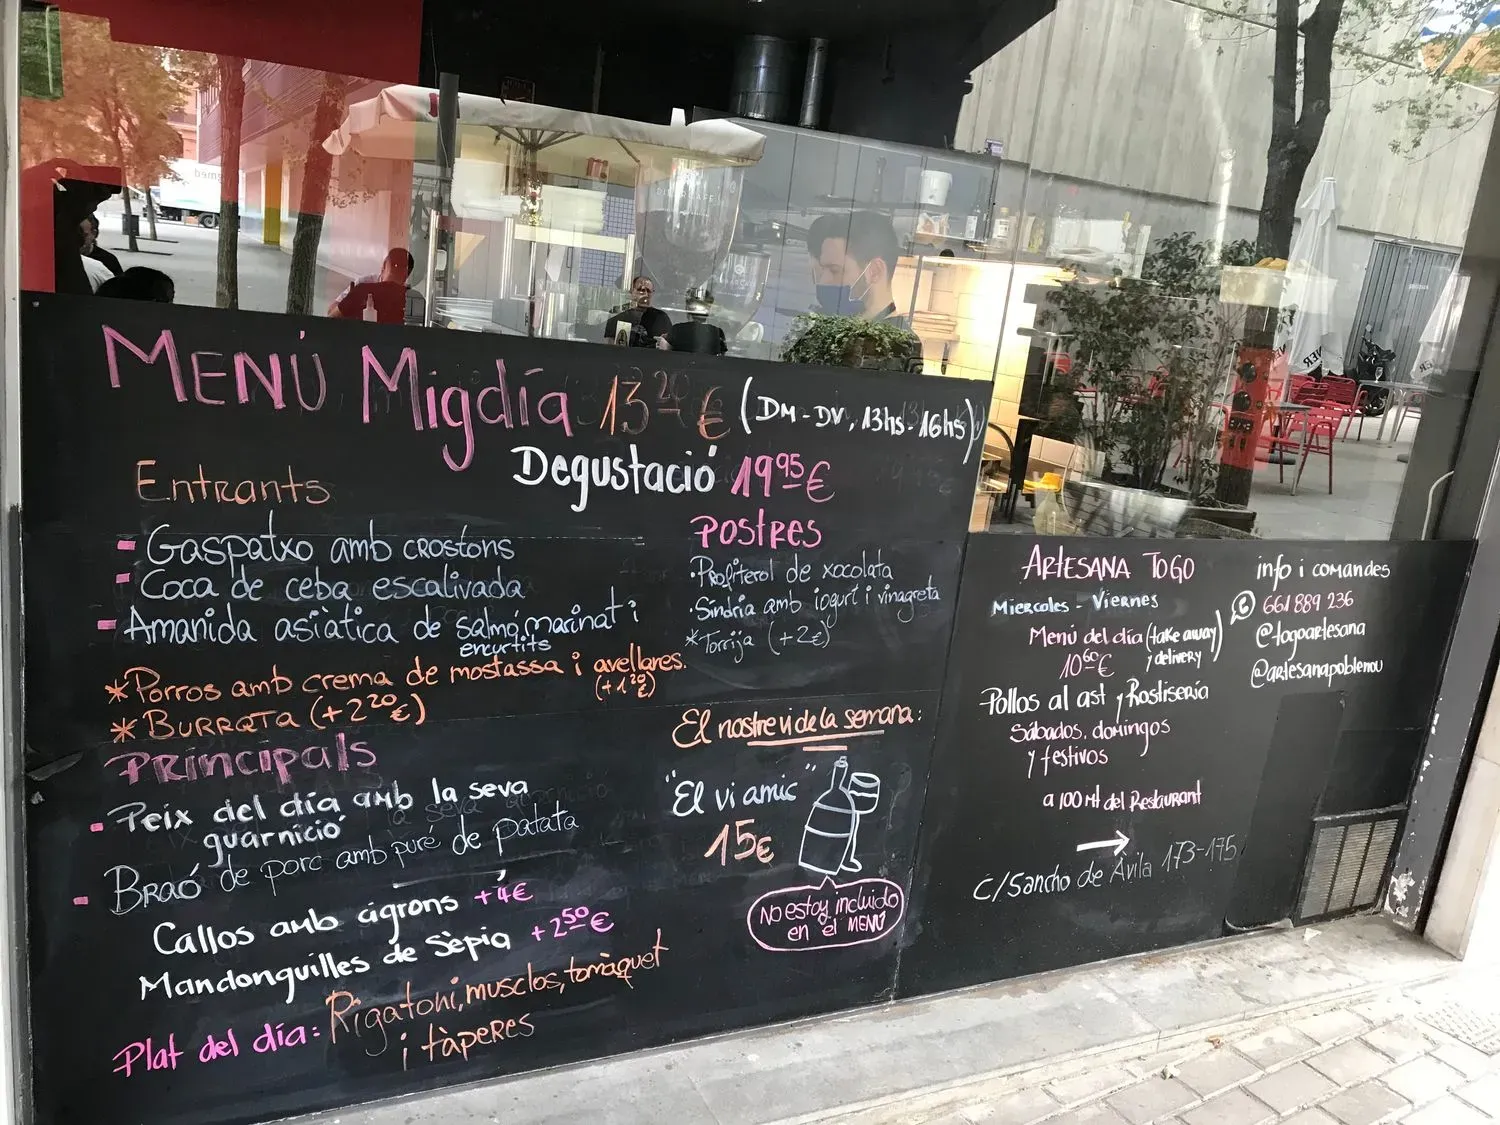 MENÚ Migdía 13²⁰ € (DM - DV, 13hs - 16hs)
Degustació 19⁹⁵ €
Entrants
- Gaspatxo amb crostons
- Coca de ceba escalivada
- Amanida asiàtica de salmó marinat i
encurtits
* Porros amb crema de mostassa i avellares.
(+1²⁰€)
* BURRATA (+2²⁰€)
Principals
- Peix del día amb la seva
guarnició
- Braó de porc amb puré de patata
Callos amb cigrons +4€
Mandonguilles de Sèpia +2⁵⁰€
Plat del día: Rigatoni, musclos, tomàquet
i tàperes
Postres
· Profiterol de xocolata
· Sindria amb iogurt i vinagreta
* Torrija (+2€)
El nostre vi de la semana:
"El vi amic"
15€
No estoy incluido
en el MENÚ
ARTESANA TOGO
Miercoles - Viernes
Menú del día (take away
10⁶⁰€ y delivery)
Pollos al ast y Rostisería
Sábados, domingos
y festivos
a 100 Mt del Restaurant
C/Sancho de Avila 173-175
info i comandes
661 889 236
@togoartesana
@artesanapoblenou